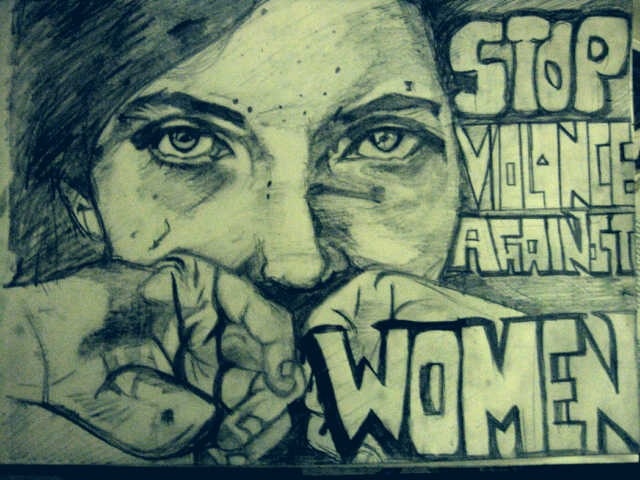 STOP
VIOLANCE
AGAINST
WOMEN